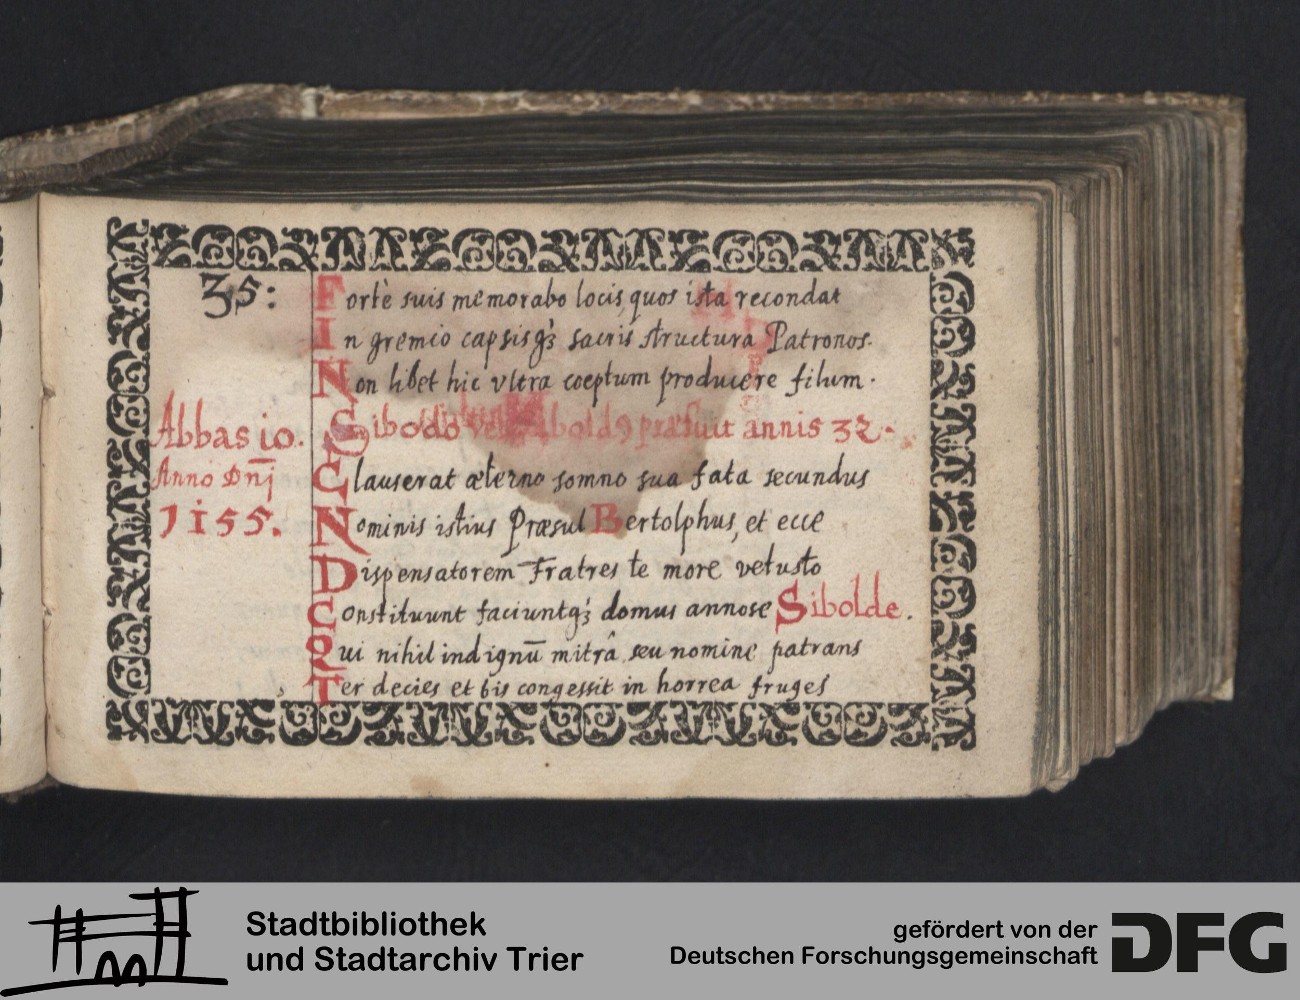 35:
Fortè suis memorabo locis, quos ista recondat
In gremio capsisqȝ sacris structura Patronos.
Non libet hic vltra coeptum producere filum.
Abbas 10.
Sibodo vel Siboldꝯ præfuit annis 32.
Anno Dn̄j
1155.
Clauserat æterno somno sua fata secundus
Nominis istius Præsul Bertolphus, et ecce
Dispensatorem Fratres te more vetusto
Constituunt faciuntqȝ domus annose Sibolde.
Qui nihil indignū mitrâ seu nomine patrans
Ter decies et bis congessit in horrea fruges
Stadtbibliothek
und Stadtarchiv Trier
gefördert von der
Deutschen Forschungsgemeinschaft
DFG